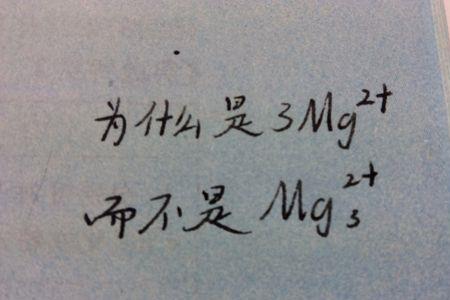 为什么是3Mg²⁺
而不是Mg₃²⁺